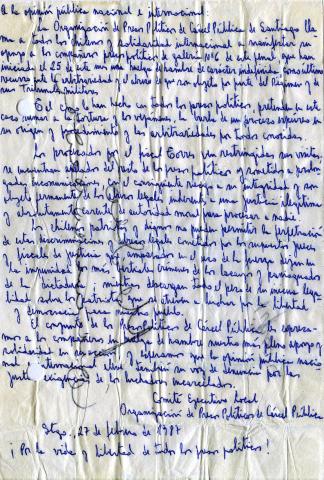 A la opinión pública nacional e internacional:
La Organización de Presos Políticos de Cárcel Pública de Santiago lla
ma a todos los chilenos y solidaridad internacional a manifestar su
apoyo a los compañeros presos políticos de galería Nº6 de este penal, que han
iniciado el 25 de este mes una huelga de hambre de carácter indefinido, como último
recurso ante la arbitrariedad y el abuso de que son objeto por parte del Régimen y de
sus Tribunales Militares.
Tal como lo han hecho con todos los presos políticos, pretenden en este
caso sumar a la tortura y los vejámenes, la burla de un proceso espurio en
su origen y procedimiento y las arbitrariedades por todos conocidas.
Los procesados por el fiscal Torres son restringidos en visitas,
se encuentran aislados del resto de los presos políticos y sometidos a prolon
gadas incomunicaciones, con el consiguiente riesgo a su integridad y son
objeto permanente de abusos legales, inherentes a una justicia ilegítima
y absolutamente carente de autoridad moral para procesar a nadie.
Los chilenos patriotas y dignos no pueden permitir la perpetración
de estas discriminaciones y abusos legales cometidos por los supuestos jueces
y fiscales de justicia que amparados en el uso de la fuerza dejan en
la impunidad los más terribles crímenes de los lacayos y paniaguados
de la dictadura, y mientras descargan todo el peso de su inmensa ilega
lidad sobre los patriotas que se atreven a luchar por la libertad
y democracia para nuestro pueblo.
El conjunto de los Presos Políticos de Cárcel Pública, les expresa-
mos a los compañeros en huelga de hambre nuestro más pleno apoyo y
solidaridad en esas y esperamos que la opinión pública nacio
nal e internacional eleve también su voz de denuncia por las
justas exigencias de los luchadores encarcelados.
Comité Ejecutivo Local
Organización de Presos Políticos de Cárcel Pública
Stgo., 27 de febrero de 1987
¡Por la vida y libertad de todos los presos políticos!